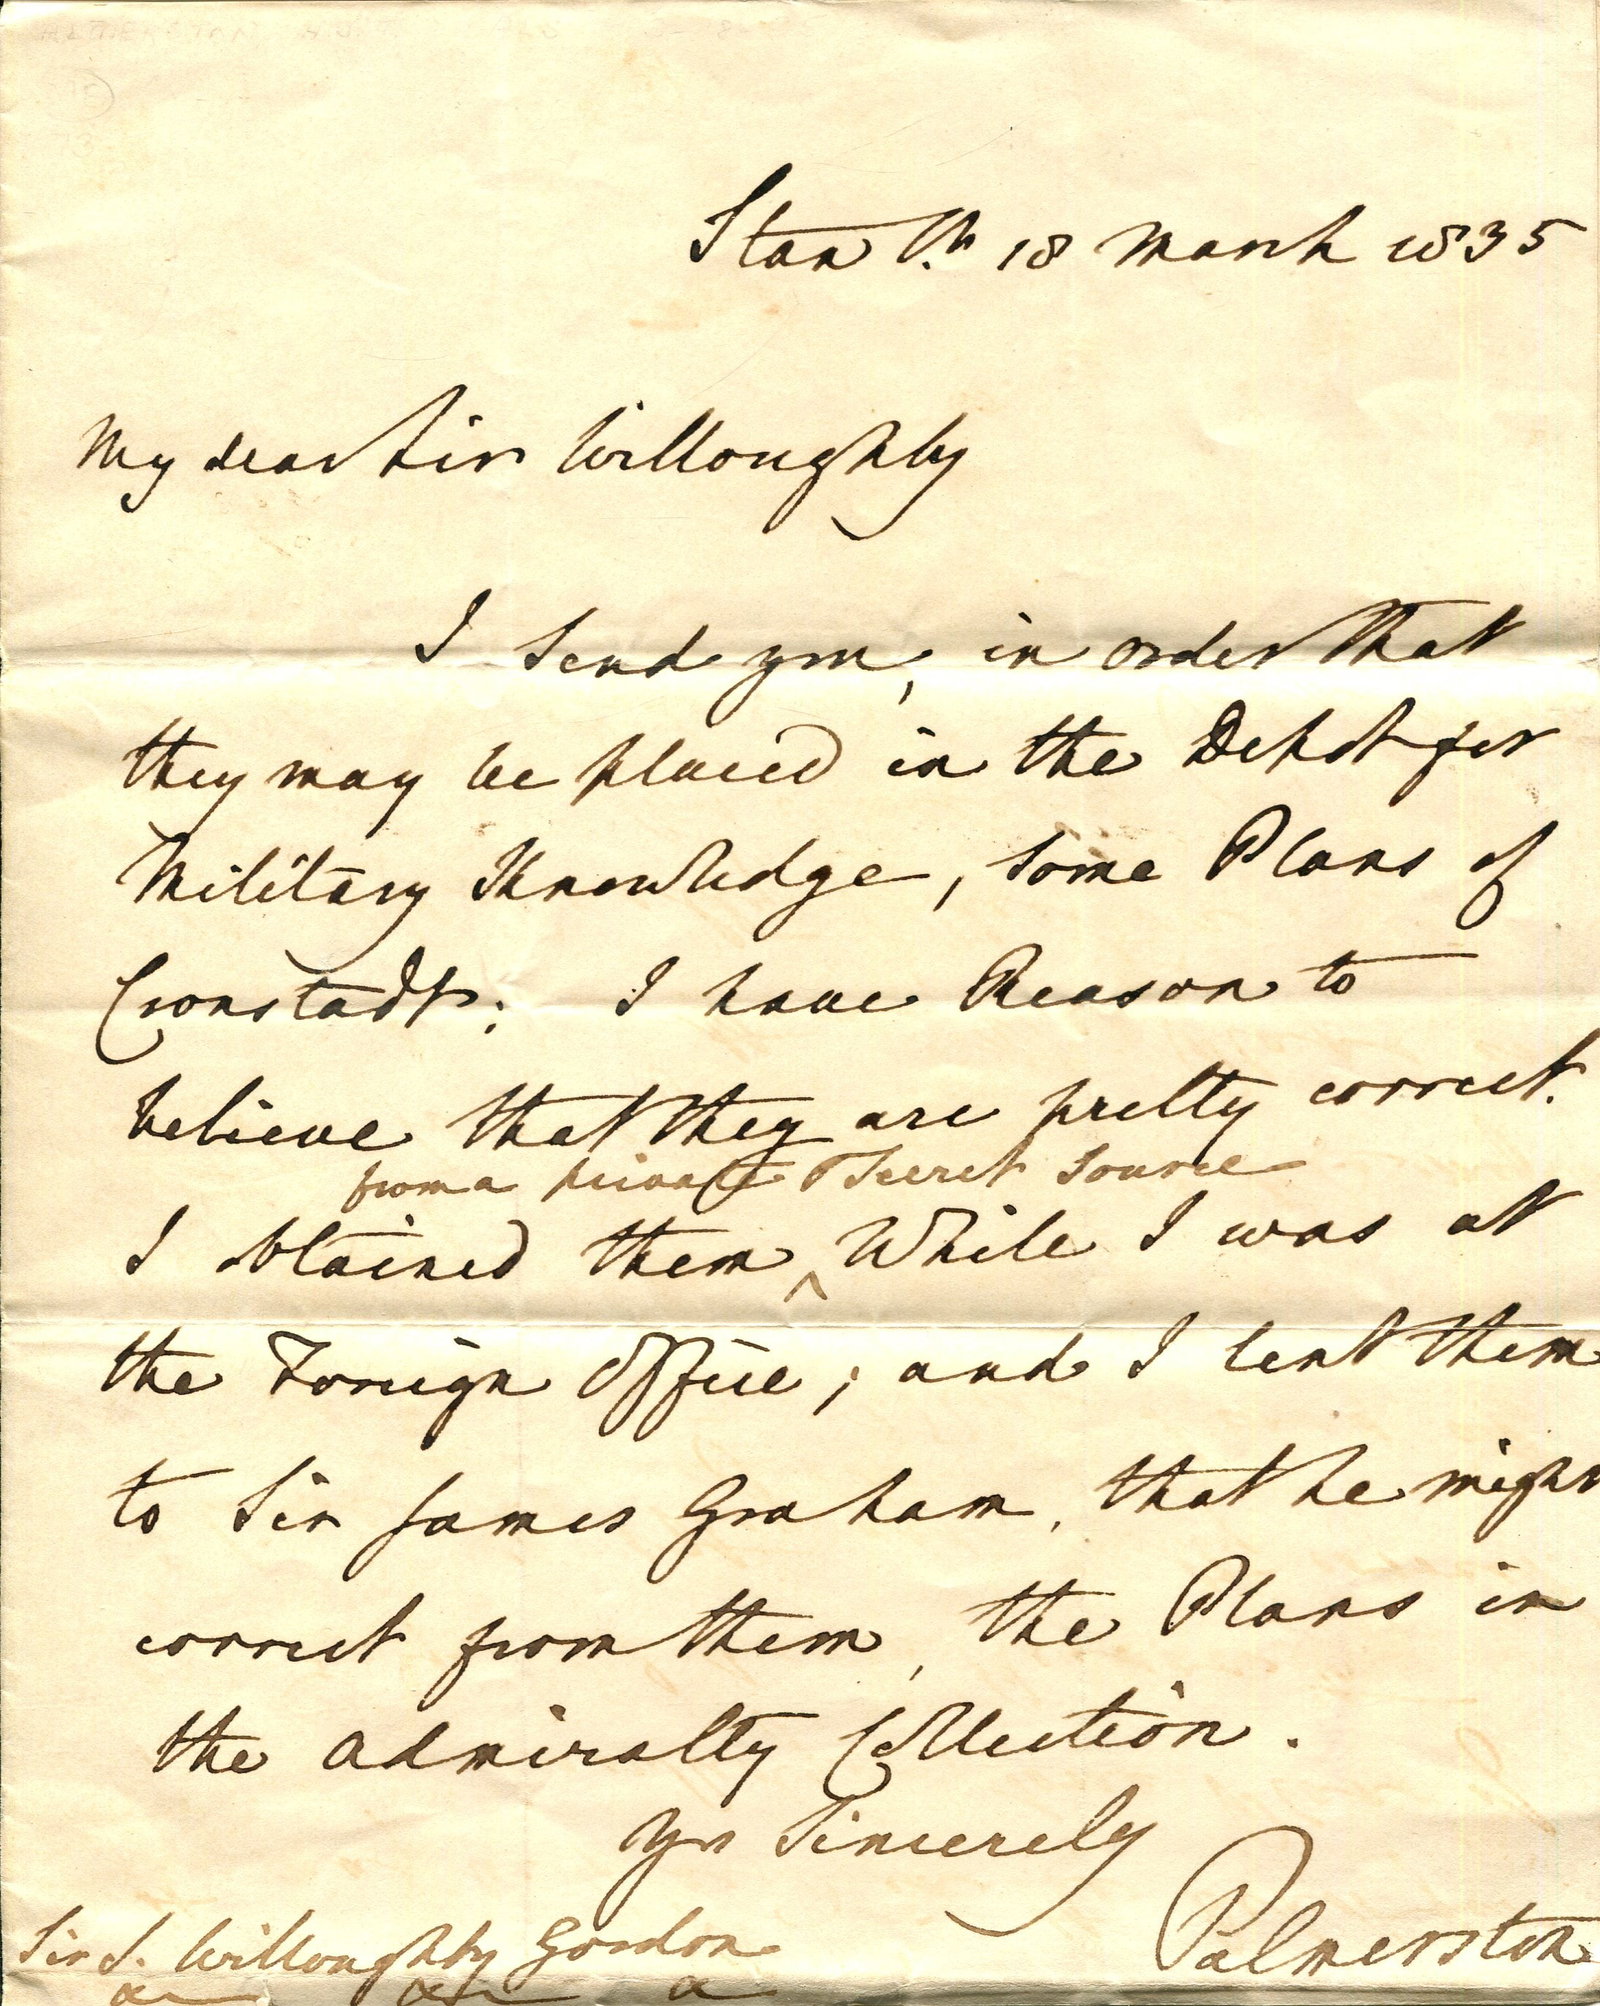 Stan Str 18 March 1835
My dear Sir Willoughby
I send you, in order that
they may be placed in the Depot for
Military Knowledge, some Plans of
Cronstadt; I have Reason to
believe that they are pretty correct.
from a private & Secret Source
I obtained them ^ While I was at
the Foreign Office; and I lent them
to Sir James Graham, that he might
correct from them, the Plans in
the Admiralty Collection.
Yrs Sincerely
Palmerston
Sir J. Willoughby Gordon